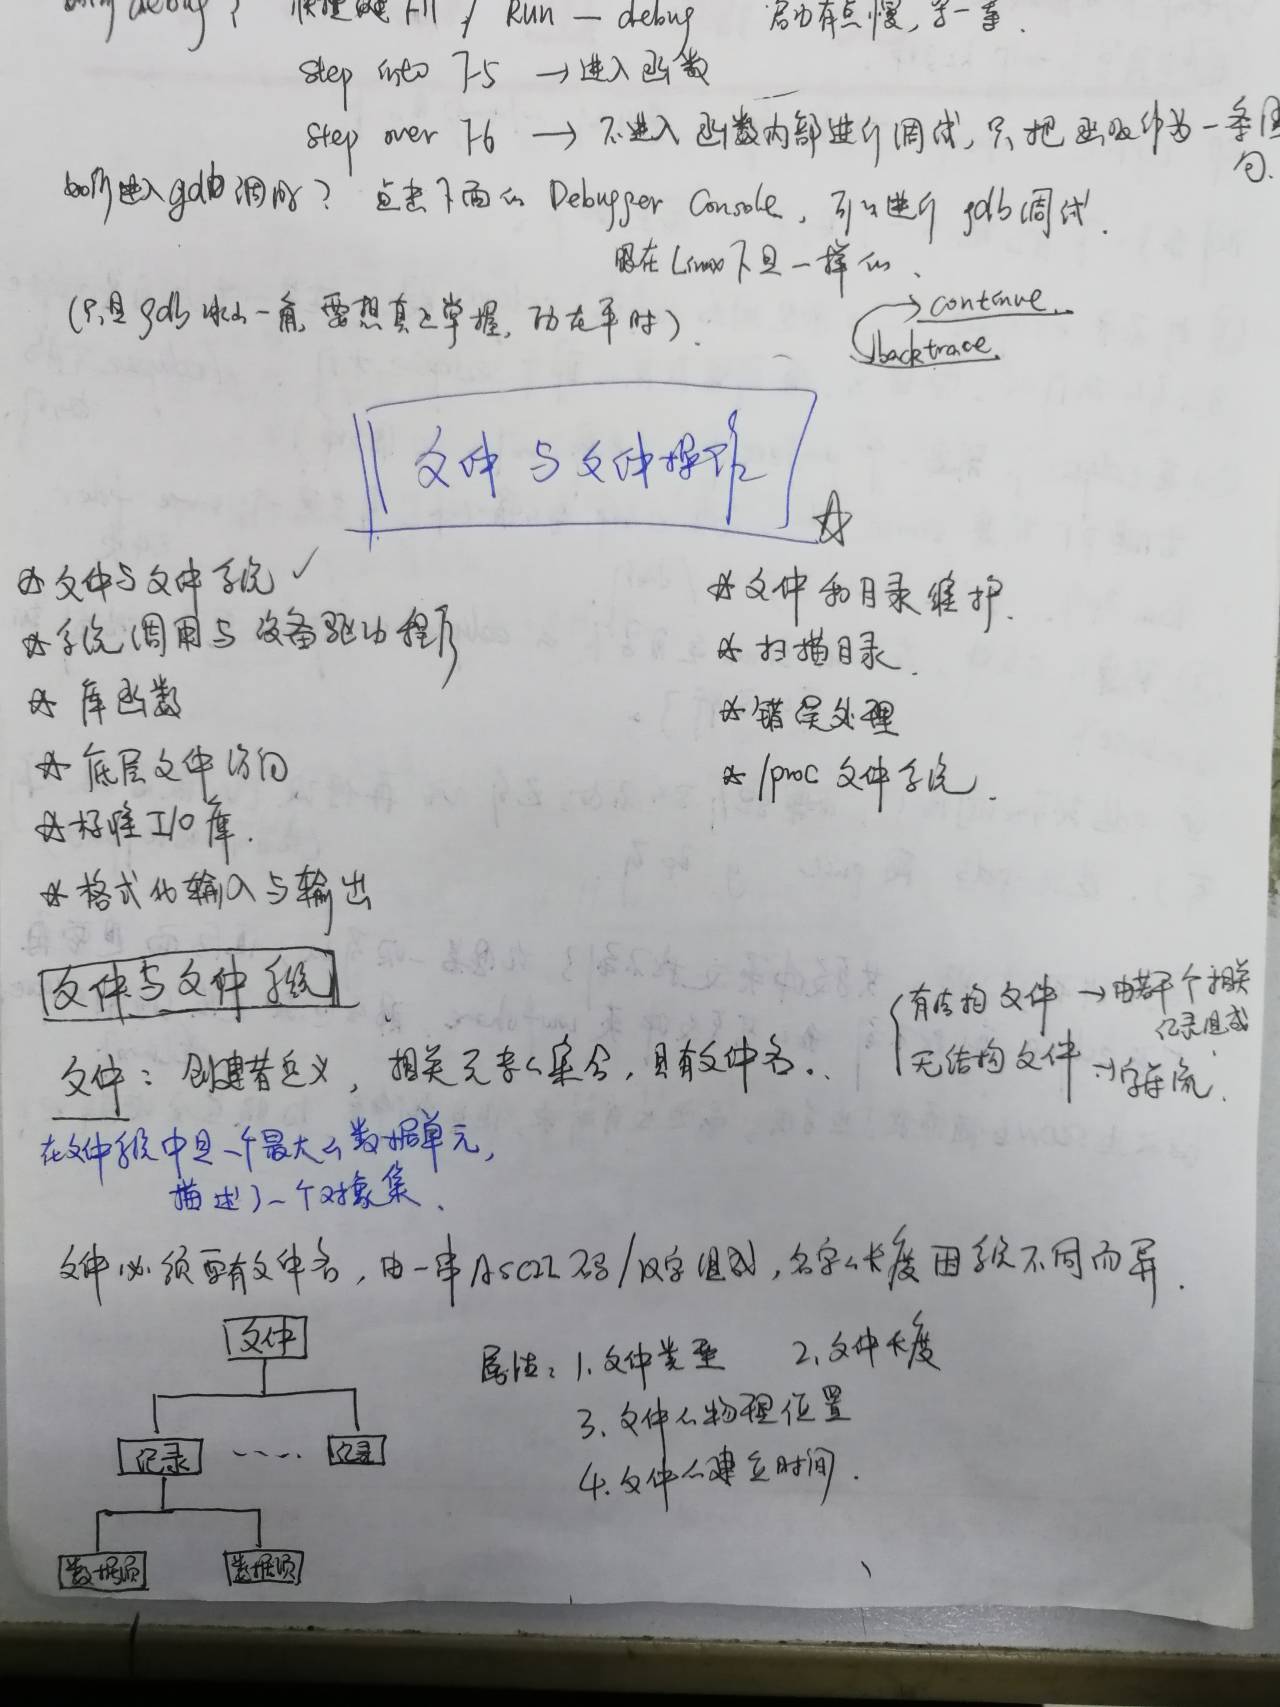 如何debug? 快捷键F11 / Run — debug 启动有点慢,等一等.
step into F5 → 进入函数
step over F6 → 不进入函数内部进行调试,只把函数作为一条语句.
如何进入gdb调试? 点击下面的 Debugger Console, 可以进行 gdb调试.
跟在Linux下是一样的.
(只是gdb冰山一角,要想真正掌握,功在平时).
continue.
backtrace.
文件与文件操作
☆文件与文件系统 ✓
☆系统调用与设备驱动程序
☆库函数
☆底层文件访问
☆标准I/O库.
☆格式化输入与输出
☆文件和目录维护.
☆扫描目录.
☆错误处理
☆/proc 文件系统.
文件与文件系统
文件: 创建者定义, 相关元素的集合,具有文件名.
有结构文件 → 由若干个相关记录组成.
无结构文件 → 字符流.
在文件系统中是一个最大的数据单元,
描述了一个对象集.
文件必须要有文件名,由一串ASCII码/汉字组成,名字的长度因系统不同而异.
文件
记录 ···· 记录
数据项 数据项
属性: 1.文件类型 2.文件长度
3.文件的物理位置
4.文件的建立时间.